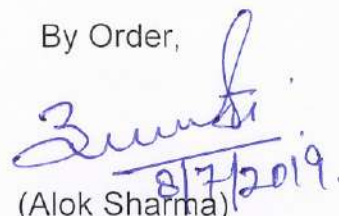 By Order,
8/7/2019.
(Alok Sharma)